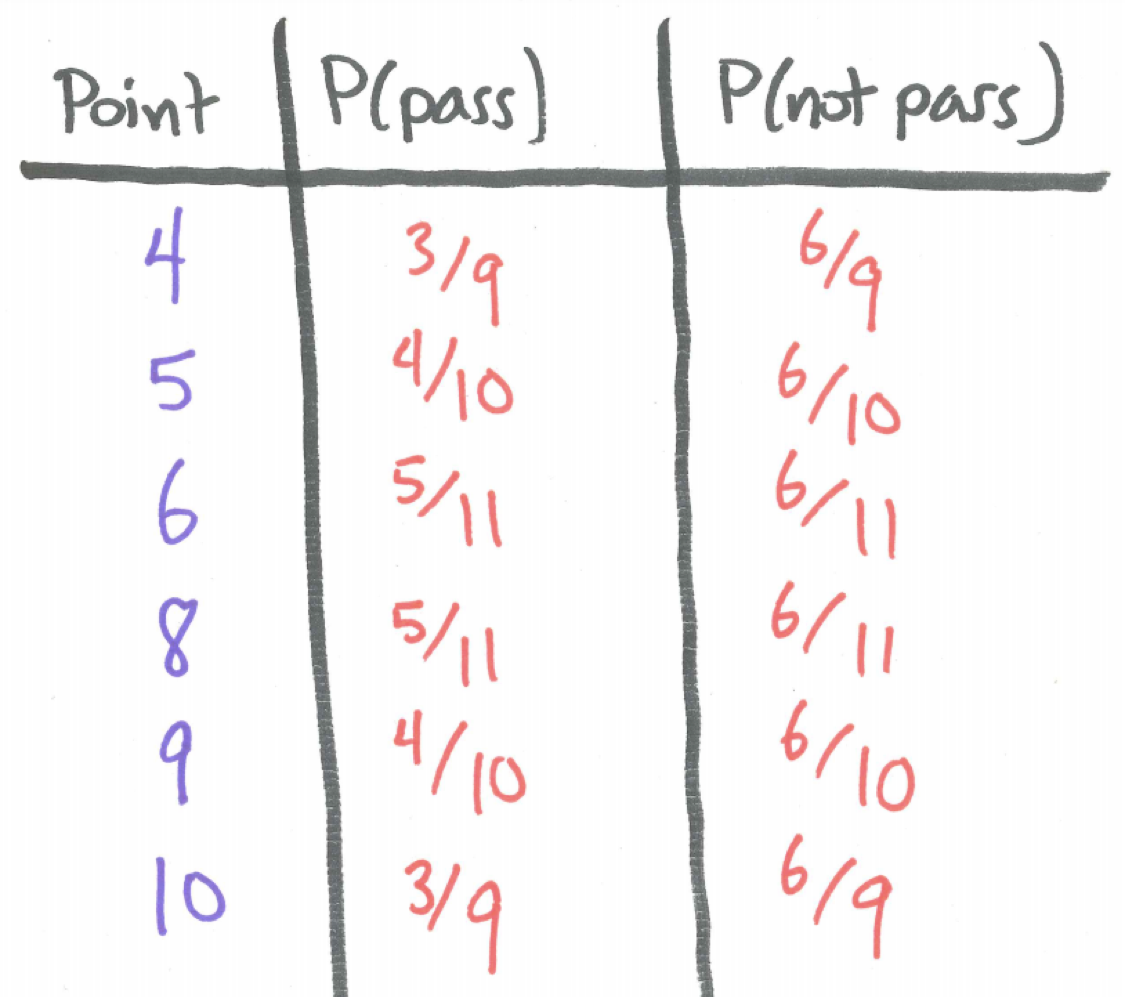 Point P(pass) P(not pass)
4 3/9 6/9
5 4/10 6/10
6 5/11 6/11
8 5/11 6/11
9 4/10 6/10
10 3/9 6/9